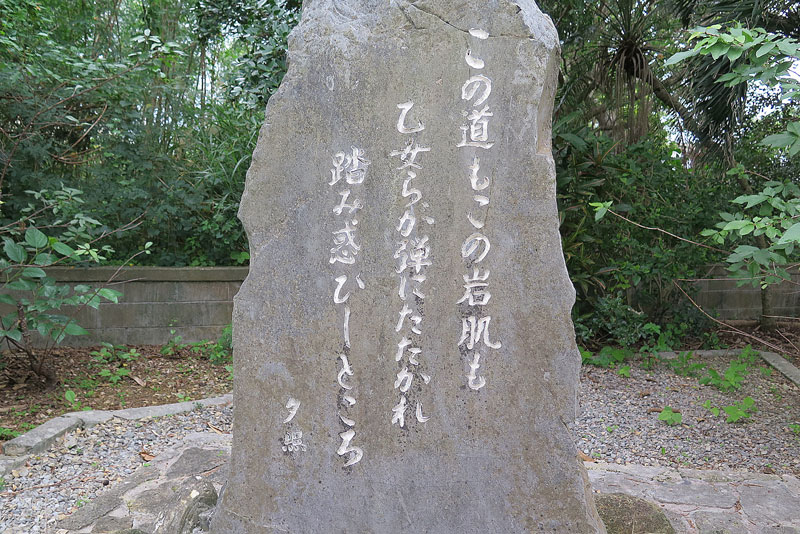 この道もこの岩肌も
乙女らが弾にたたかれ
踏み惑ひしところ
夕照